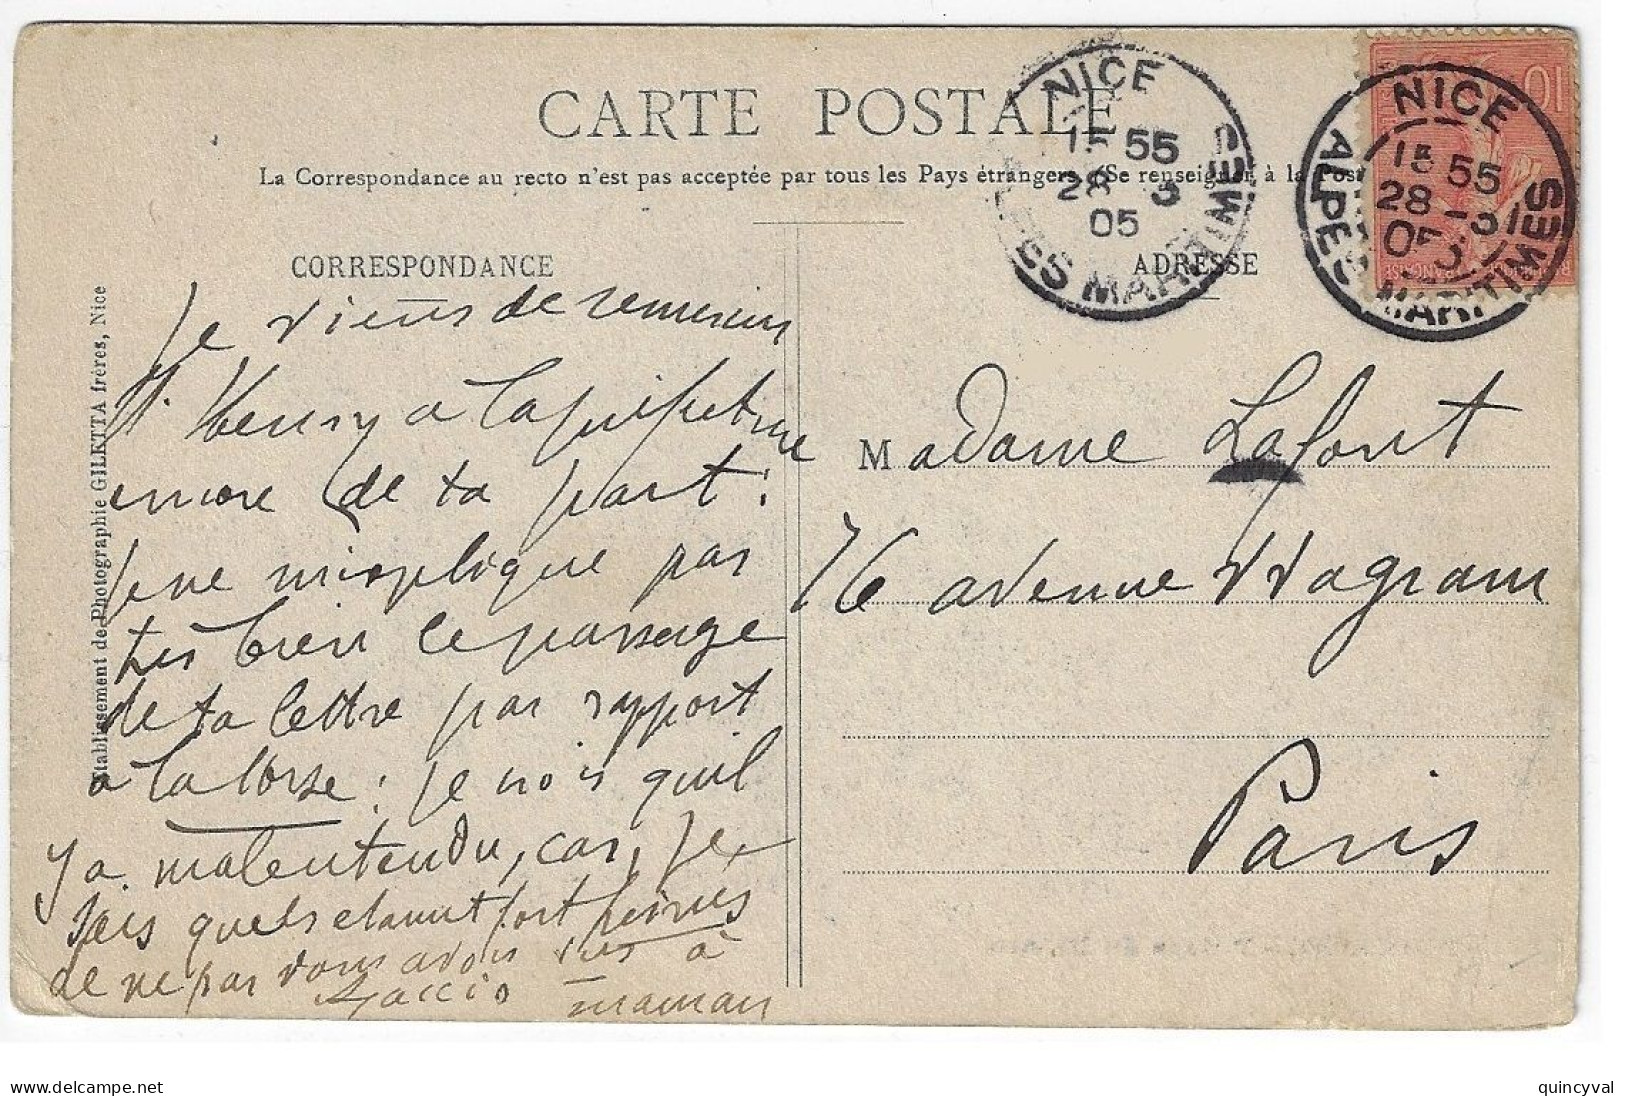 CARTE POSTALE
La Correspondance au recto n'est pas acceptée par tous les Pays étrangers (Se renseigner à la Post
CORRESPONDANCE
ADRESSE
NICE
15 55
28 3
05
ES MARITIMES
NICE
15 55
28 -3
05
ALPES MARITIMES
10
Etablissement de Photographie GILETTA frères, Nice
Je viens de remercier
M. Henry à la
encore de ta part.
Je ne m'explique pas
très bien le passage
de ta lettre par rapport
à la Corse : je vois qu'il
y a malentendu, car, je
sais qu'ils étaient fort peinés
de ne pas vous avoir vus à
Ajaccio maman
Madame Lafont
76 avenue Wagram
Paris
delcampe.net
quincyval